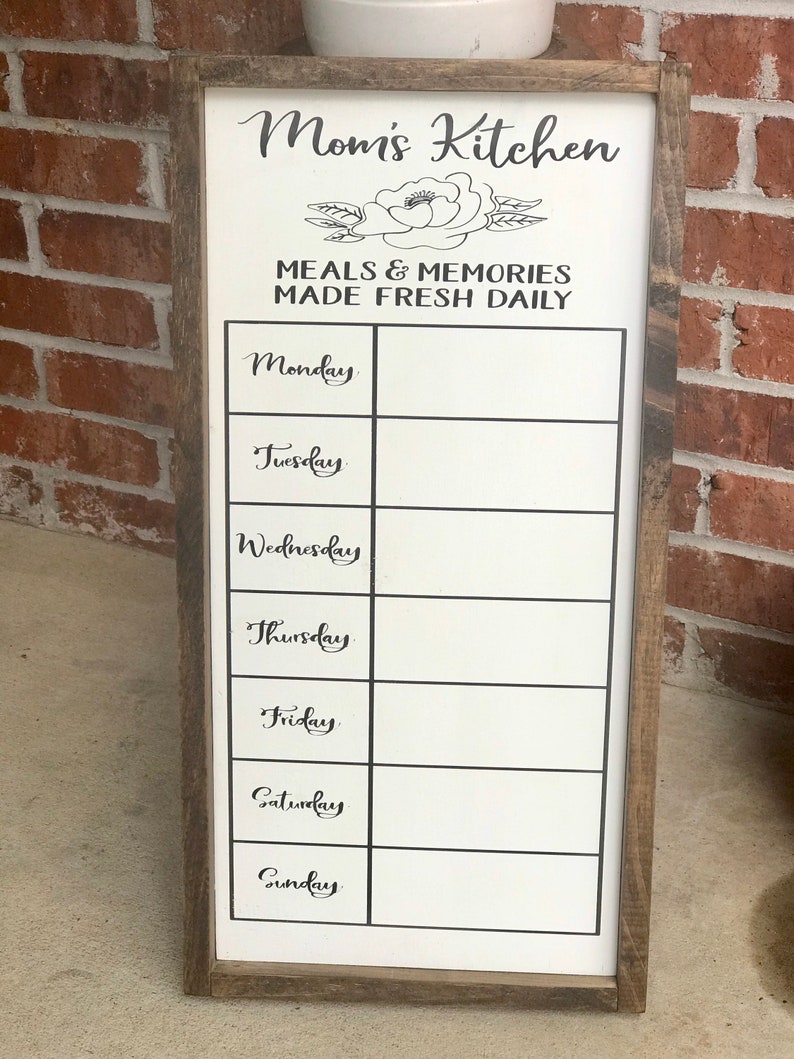 Mom's Kitchen
MEALS & MEMORIES
MADE FRESH DAILY
Monday
Tuesday
Wednesday
Thursday
Friday
Saturday
Sunday